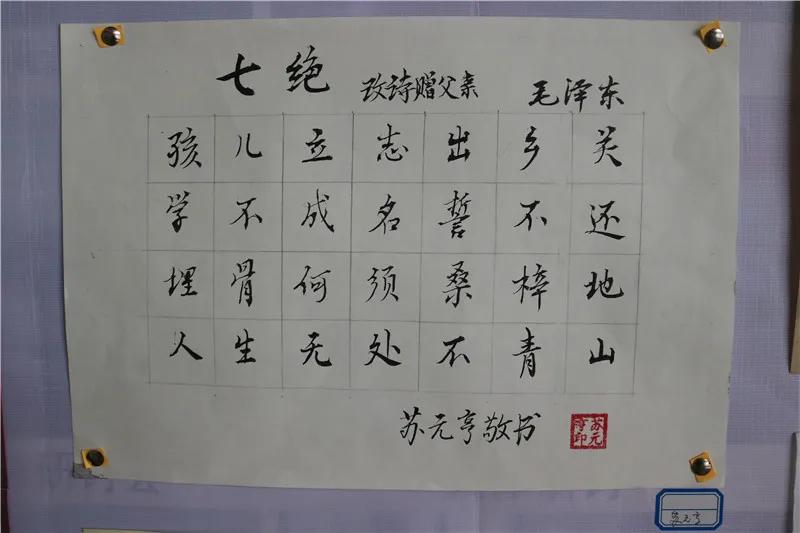 七绝 改诗赠父亲 毛泽东
孩儿立志出乡关
学不成名誓不还
埋骨何须桑梓地
人生无处不青山
苏元亨敬书
苏元亨印
苏元亨